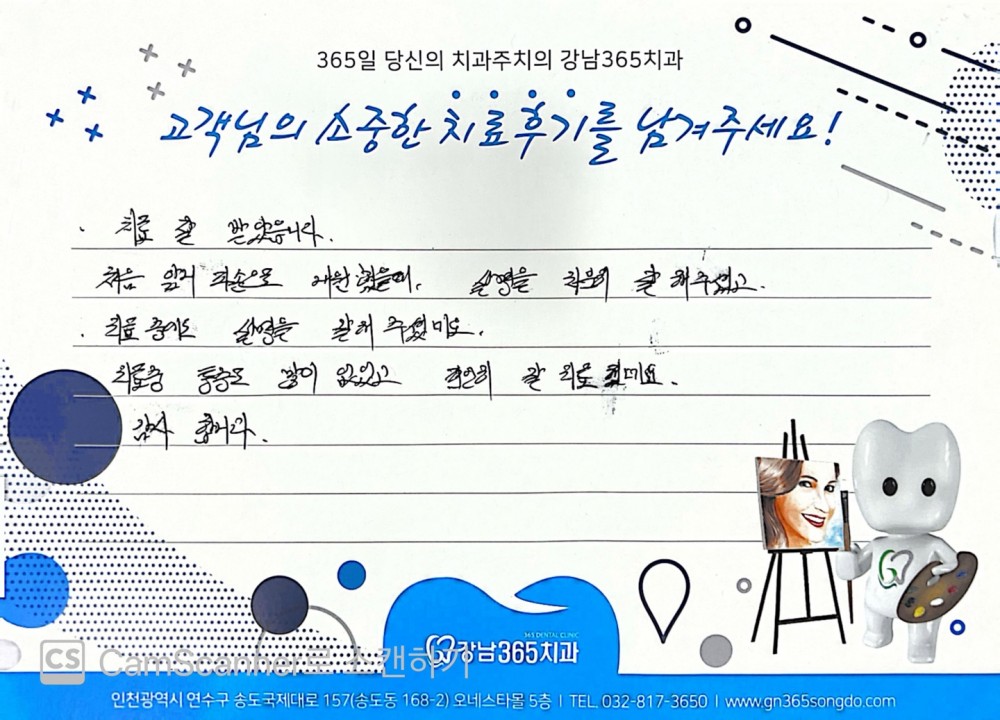 365일 당신의 치과주치의 강남365치과
고객님의 소중한 치료후기를 남겨주세요!
. 치료 잘 받았습니다.
처음 앞니 파손으로 내원 했을때, 설명을 차분히 잘 해주셨고.
. 치료 중에도 설명을 잘해 주셨
치료중 통증도 많이 없었고 편안히 잘 치료
감사 합니다.
365 DENTAL CLINIC
강남365치과
CS CamScanner로 스캔하기
인천광역시 연수구 송도국제대로 157(송도동 168-2) 오네스타몰 5층 | TEL. 032-817-3650 | www.gn365songdo.com